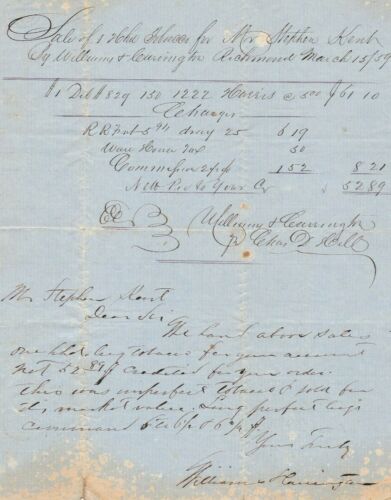 Sale of 1 Hhd Tobacco for Mr Stephen Kent
By Williams & Carrington Richmond March 15/59
1 829 130 1222 Harris @ 5.00 $61 10
Charges
R R Frt 5.94 dray 25 $6 19
Ware House Tax 50
Commission 1 52 8 21
Nett Pro to Your Cr $52 89
E E
Williams & Carrington
pr Chas D Hill
Mr Stephen Kent
Dear Sir
We hand above sale of
one hhd lugs tobacco for your account
Nett 52.89 credited for your order.
this was imperfect Tobacco & sold for
its market value. Lugs perfect lugs
command
Yours Truly
Williams & Carrington